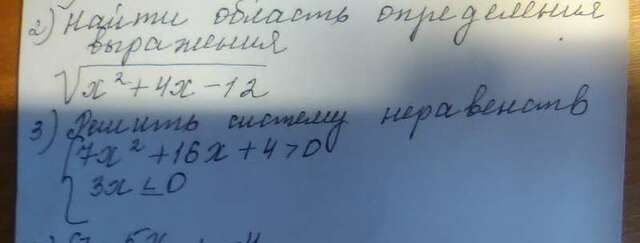 2) Найти область определения
выражения
√x²+4x-12
3) Решить систему неравенств
7x²+16x+4>0
3x≤0